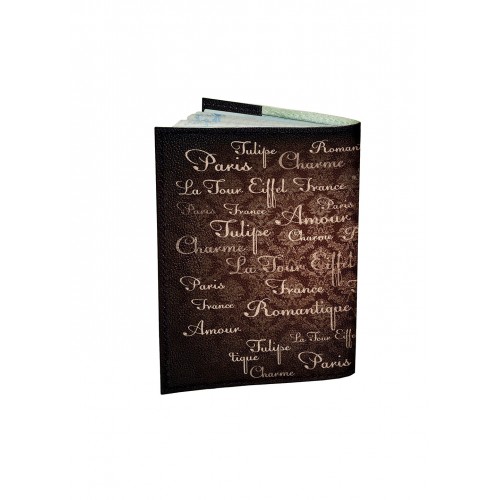 Tulipe Roman
Paris Charme
La Tour Eiffel France
Paris France Amour
Tulipe Charme Pa
Charme
La Tour Eiffel
Paris France
France Romantique
Amour La Tour Eiffe
Tulipe
tique Paris
Charme